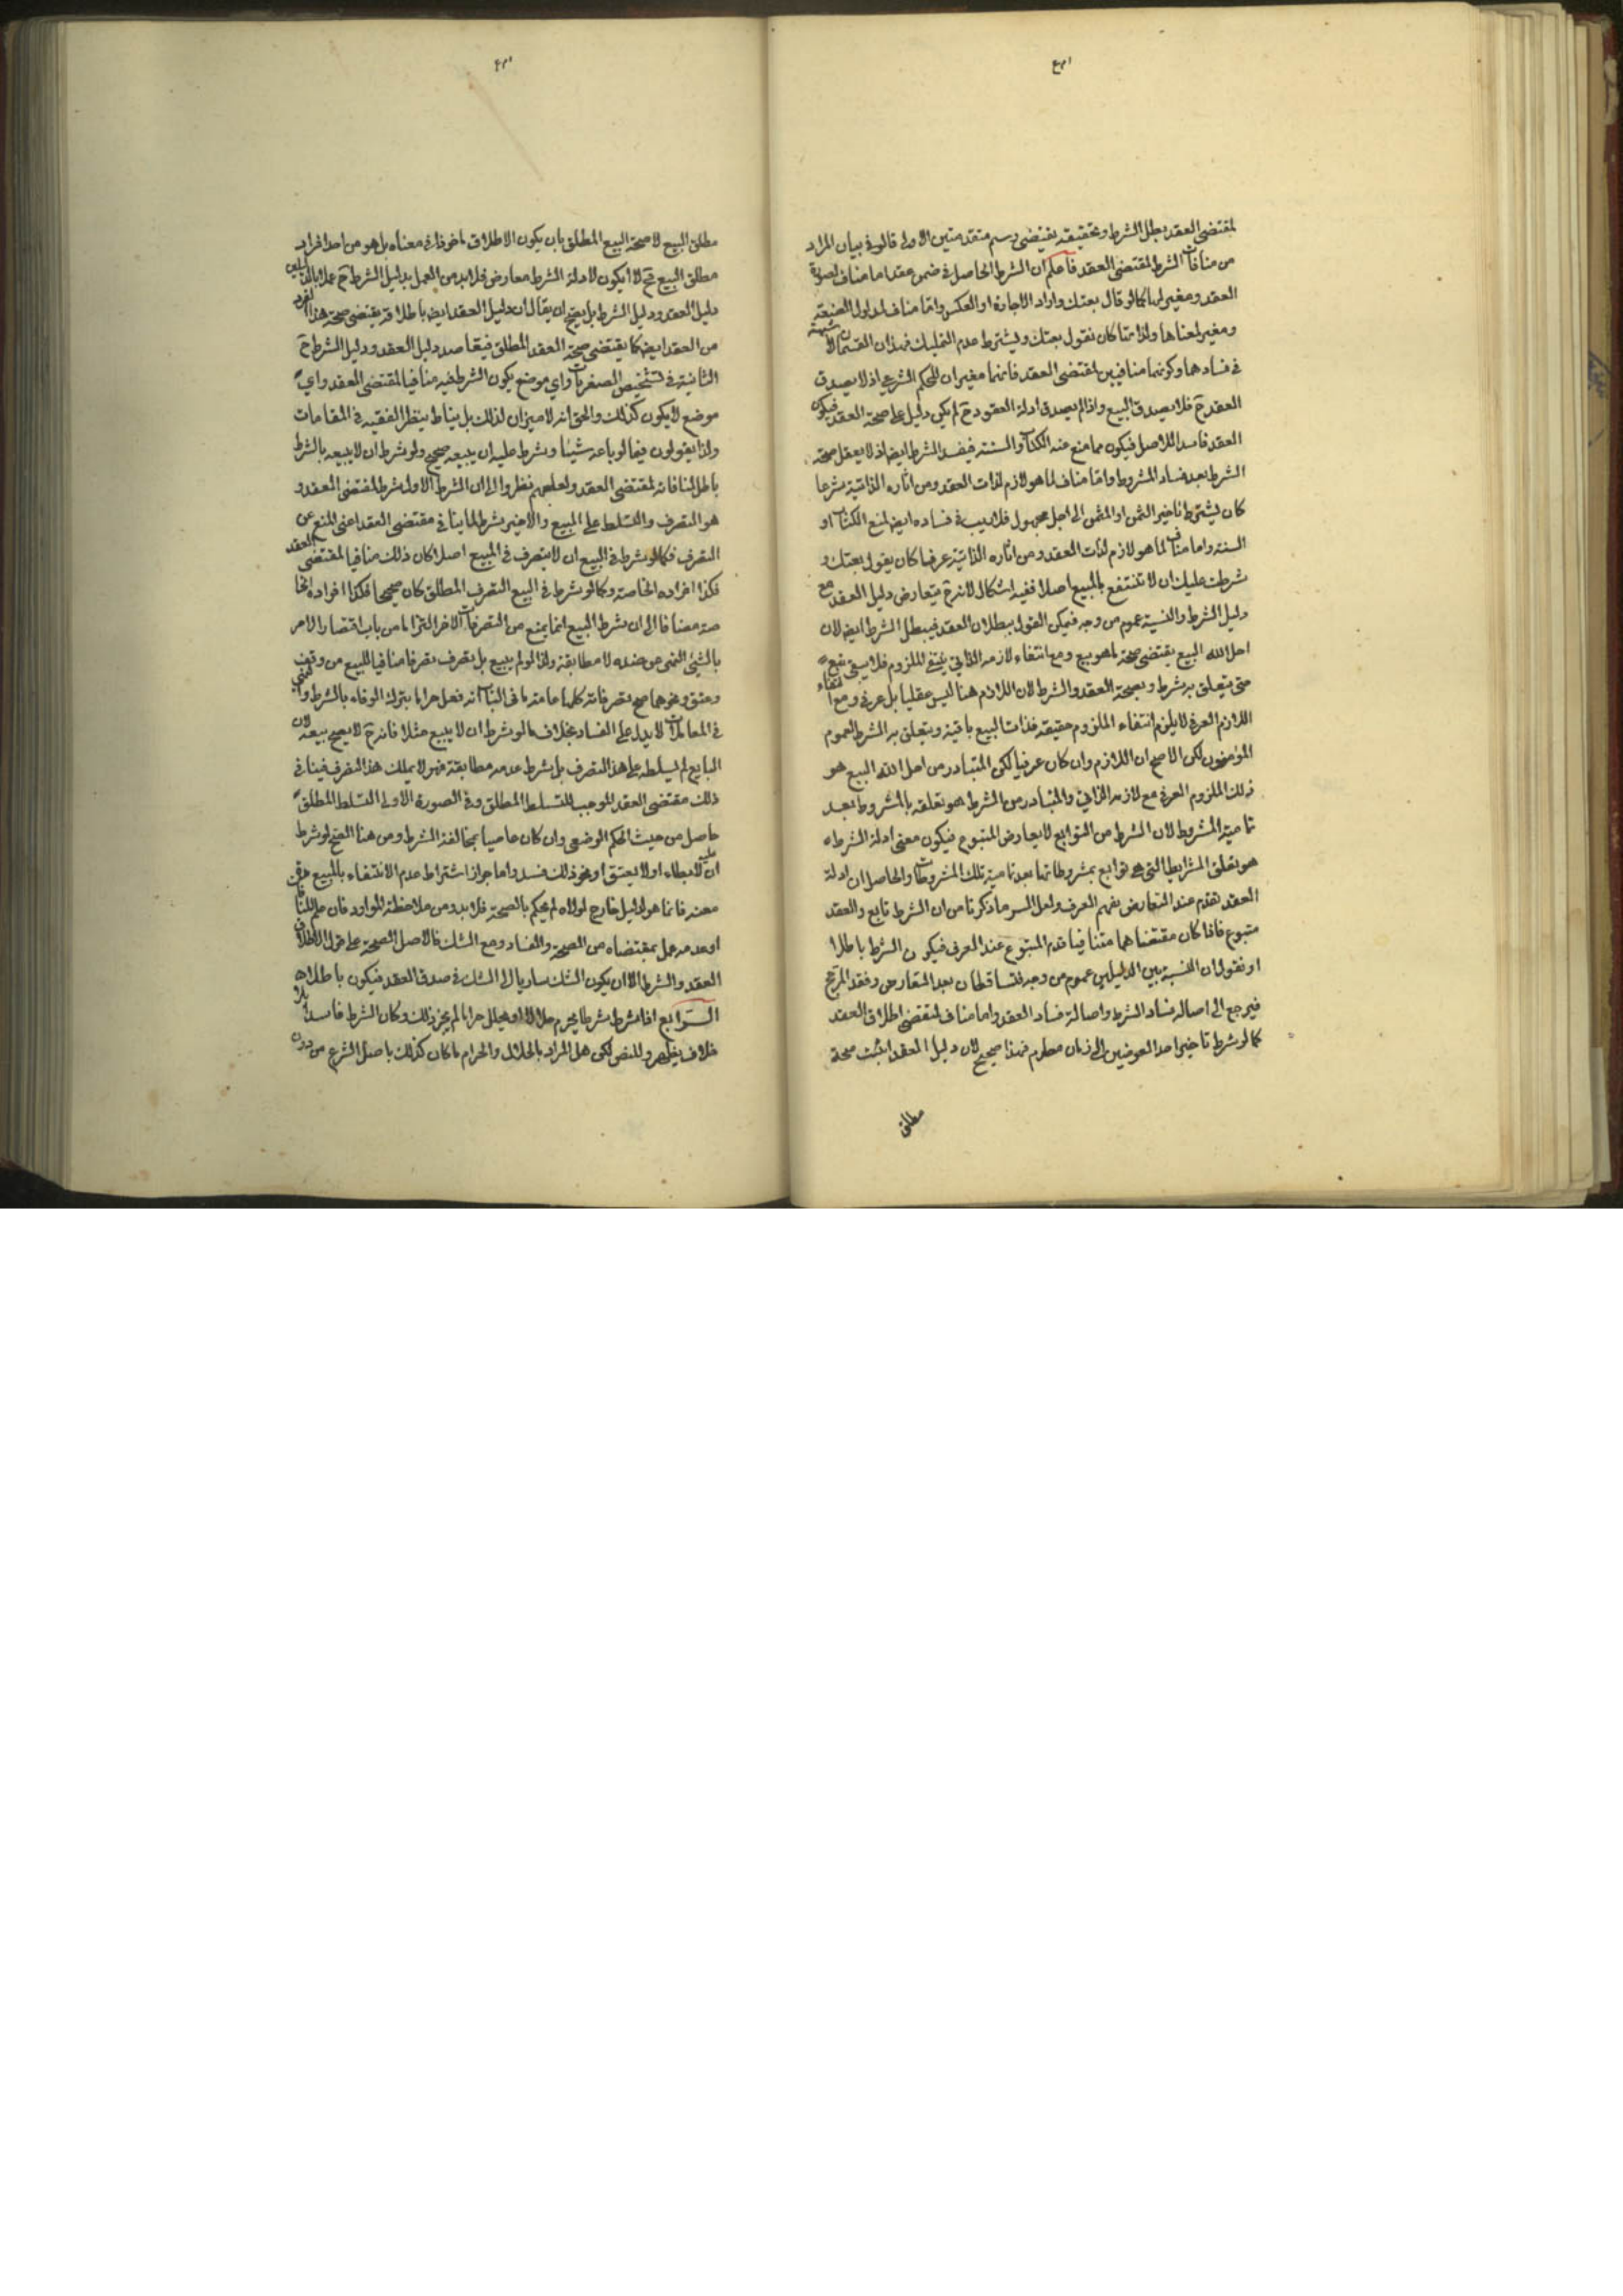 لمقتضى العقد بطل الشرط وتحقيقه يقتضى رسم متقدمتين الاولى قالوا في بيان المراد
من منافات الشرط لمقتضى العقد فاعلم ان الشرط الحاصل في ضمن عقد اما مناف لصورة
العقد ومغير لها كما لو قال بعتك واراد الاجارة او العكس واما مناف لمدلول الصيغة
ومغير لمعناها ولذاتها كان نقول بعتك ويشترط عدم التمليك فهذان القسمان لا شبهة
في فسادهما وكونهما منافيين لمقتضى العقد فانهما مغيران للحكم الشرعي اذ لا يصدق
العقد ح فلا يصدق البيع واذا لم يصدق ادلة العقود ح لم يكن دليل على صحة العقد فيكون
العقد فاسدا للاصل فيكون مما منع عنه الكتاب والسنة فيفسد الشرط ايضا اذ لا يعقل صحة
الشرط بعد فساد المشروط واما مناف لما هو لازم لذات العقد ومن اثاره الذاتية شرعا
كان يشترط تاخير الثمن او المثمن الى اجل مجهول فلا ريب في فساده ايضا لمنع الكتاب او
السنة واما مناف لما هو لازم لذات العقد ومن اثاره الذاتية عرفا كان يقول بعتك و
شرطت عليك ان لا تنتفع بالمبيع اصلا ففيه اشكال لانه ح يتعارض دليل العقد مع
دليل الشرط والنسبة عموم من وجه فيمكن القول ببطلان العقد فيبطل الشرط ايضا لان
احل الله البيع يقتضى صحة ما هو بيع ومع انتفاء لازمه الذاتي ينتفي الملزوم فلا يبقى بيع
حتى يتعلق به شرط وبصحة العقد والشرط لان اللازم هنا ليس عقليا بل عرفي ومع انتفاء
اللازم العرفي لا يلزم انتفاء الملزوم حقيقة فذات البيع باقية ويتعلق به الشرط لعموم
المؤمنون لكن الاصح ان اللازم وان كان عرفيا لكن المتبادر من احل الله البيع هو
ذلك الملزوم العرفي مع لازمه الذاتي والمتبادر من الشرط هو تعلقه بالمشروط بعد
تمامية المشروط لان الشرط من التوابع لا يعارض المتبوع فيكون معنى ادلة الشرط
هو تعلق الشرايط التي هي توابع بمشروطاتها بعد تمامية تلك المشروطات والحاصل ان ادلة
العقد تقدم عند التعارض بفهم العرف ولعل السر ما ذكرنا من ان الشرط تابع والعقد
متبوع فاذا كان مقتضاهما متنافيا قدم المتبوع عند العرف فيكون الشرط باطلا
او نقول ان النسبة بين الدليلين عموم من وجه فتساقطان بعد التعارض وفقد المرجح
فيرجع الى اصالة فساد الشرط واصالة فساد العقد واما مناف لمقتضى اطلاق العقد
كما لو شرط تاخير احد العوضين الى زمان معلوم فهذا صحيح لان دليل العقد اثبت صحة
مطلق
مطلق البيع لا صحة البيع المطلق بان يكون الاطلاق ماخوذا في معناه بل هو من احد افراد
مطلق البيع فح لا يكون لادلة الشرط معارض فلا بد من العمل بدليل الشرط ح عملا بالدليلين
دليل العقد ودليل الشرط بل يصح ان يقال ان دليل العقد ايضا باطلاقه يقتضى صحة هذا الفرد
من العقد ايضا كما يقتضى صحة العقد المطلق فيتعاضد دليل العقد ودليل الشرط ح
الثانية في تشخيص الصغريات واي موضع يكون الشرط فيه منافيا لمقتضى العقد واي
موضع لا يكون كذلك والحق انه لا ميزان لذلك بل يناط بنظر الفقيه في المقامات
ولذا يقولون فيما لو باعه شيئا وشرط عليه ان يبيعه صحيح ولو شرط ان لا يبيعه بالشرط
باطل لمنافاته لمقتضى العقد ولعلهم نظروا الى ان الشرط الاول شرط لمقتضى العقد و
هو التصرف والتسلط على المبيع والاخير شرط لما ينافي مقتضى العقد اعنى المنع عن
التصرف فكما لو شرط في البيع ان لا يتصرف في المبيع اصلا كان ذلك منافيا لمقتضى العقد
فكذا افراده الخاصة وكما لو شرط في البيع التصرف المطلق كان صحيحا فكذا افراده الخا
صة مضافا الى ان شرط البيع انما يمنع من التصرفات الاخر التزاما من باب اقتضاء الامر
بالشيء النهى عن ضده لا مطابقة ولذا لو لم يبيع بل تصرف تصرفا منافيا للبيع من وقف
وعتق ونحوهما صح تصرفاته كلها عامة ما في الباب انه فعل حراما بترك الوفاء بالشرط والنهي
في المعاملات لا يدل على الفساد بخلاف ما لو شرط ان لا يبيع مثلا فانه ح لا يصح بيعه لان
البايع لم يسلطه على هذا التصرف بل شرط عدمه مطابقة فهو لا يملك هذا التصرف فينافي
ذلك مقتضى العقد الموجب للتسلط المطلق وفي الصورة الاولى التسلط المطلق
حاصل من حيث الحكم الوضعى وان كان عاصيا بمخالفة الشرط ومن هنا اتضح لو شرط عليه
ان لا يطاء او لا يعتق او نحو ذلك فسد واما جواز اشتراط عدم الانتفاء بالمبيع
معنه فانما هو لدليل خارج لولاه لم يحكم بالصحة فلا بد من ملاحظة الموارد فان علم التنافي
او عدمه عمل بمقتضاه من الصحة والفساد ومع الشك فالاصل الصحة على قول لاطلاق
العقد والشرط الا ان يكون الشك ساريا الى الشك في صدق العقد فيكون باطلا
الرابع اذا شرط شرطا يحرم حلالا او يحلل حراما لم يجز ذلك وكان الشرط فاسدا بلا
خلاف يظهر وللنص لكن هل المراد بالحلال والحرام ما كان كذلك باصل الشرع من دون